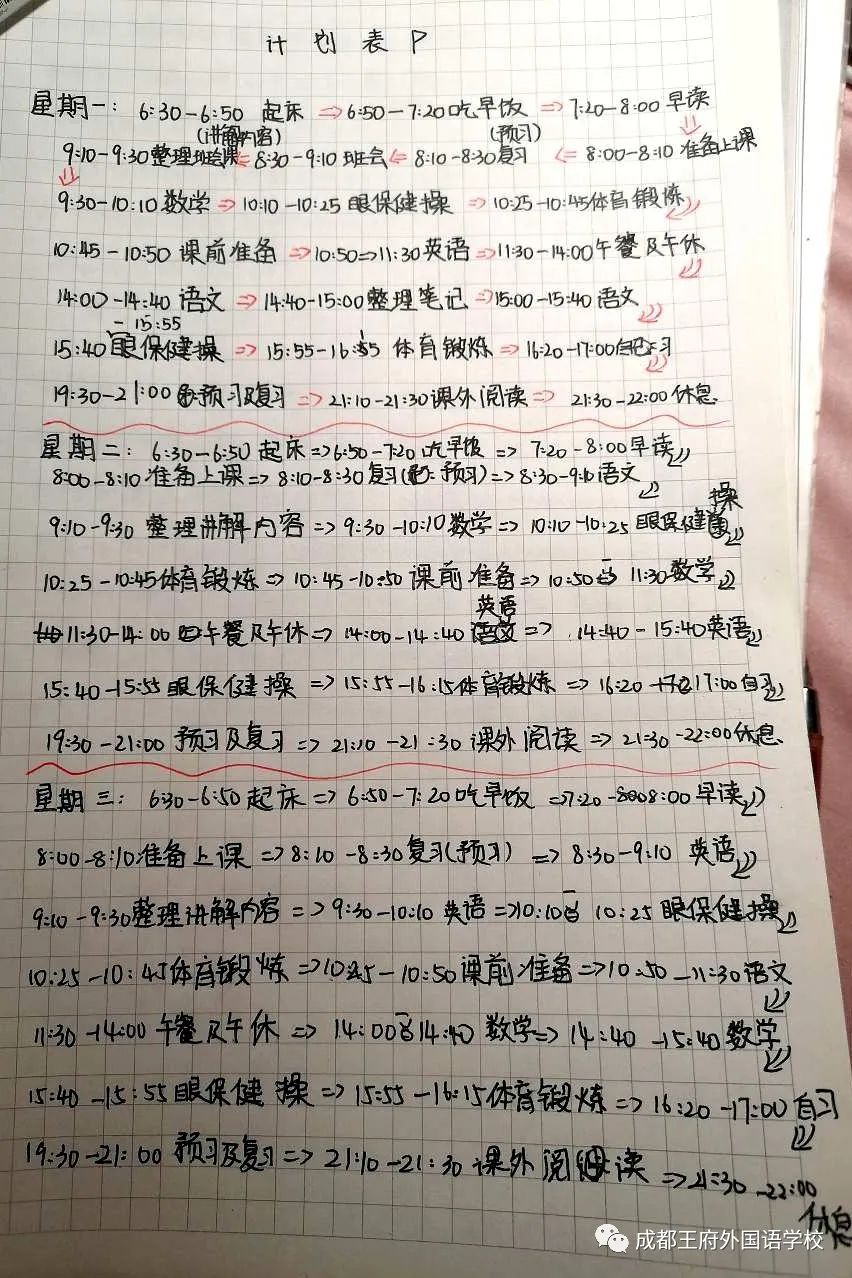 计划表P
星期一: 6:30-6:50 起床 ⇒ 6:50-7:20吃早饭 ⇒ 7:20-8:00 早读
(讲解内容) (预习)
9:10-9:30整理班会课 ⇐ 8:30-9:10 班会 ⇐ 8:10-8:30复习 ⇐ 8:00-8:10 准备上课
9:30-10:10 数学 ⇒ 10:10-10:25 眼保健操 ⇒ 10:25-10:45体育锻炼
10:45-10:50 课前准备 ⇒ 10:50⇒11:30英语 ⇒ 11:30-14:00午餐及午休
14:00-14:40 语文 ⇒ 14:40-15:00整理笔记 ⇒ 15:00-15:40 语文
-15:55
15:40眼保健操 ⇒ 15:55-16:15 体育锻炼 ⇒ 16:20-17:00自习
19:30-21:00 预习及复习 ⇒ 21:10-21:30课外阅读 ⇒ 21:30-22:00休息
星期二: 6:30-6:50起床 ⇒ 6:50-7:20吃早饭 ⇒ 7:20-8:00早读
8:00-8:10准备上课 ⇒ 8:10-8:30复习(预习) ⇒ 8:30-9:10语文
操
9:10-9:30 整理讲解内容 ⇒ 9:30-10:10数学 ⇒ 10:10-10:25 眼保健
10:25-10:45体育锻炼 ⇒ 10:45-10:50 课前准备 ⇒ 10:50- 11:30数学
英语
11:30-14:00 午餐及午休 ⇒ 14:00-14:40 ⇒ 14:40-15:40英语
15:40-15:55眼保健操 ⇒ 15:55-16:15体育锻炼 ⇒ 16:20-17:00自习
19:30-21:00 预习及复习 ⇒ 21:10-21:30 课外阅读 ⇒ 21:30-22:00休息
星期三: 6:30-6:50起床 ⇒ 6:50-7:20吃早饭 ⇒ 7:20-8:00 早读
8:00-8:10准备上课 ⇒ 8:10-8:30复习(预习) ⇒ 8:30-9:10 英语
9:10-9:30整理讲解内容 ⇒ 9:30-10:10 英语 ⇒ 10:10- 10:25 眼保健操
10:25-10:45体育锻炼 ⇒ 10:45-10:50课前准备 ⇒ 10:50-11:30语文
11:30-14:00 午餐及午休 ⇒ 14:00-14:40 数学 ⇒ 14:40-15:40数学
15:40-15:55眼保健操 ⇒ 15:55-16:15体育锻炼 ⇒ 16:20-17:00自习
19:30-21:00 预习及复习 ⇒ 21:10-21:30 课外阅读 ⇒ 21:30-22:00
休息
成都王府外国语学校